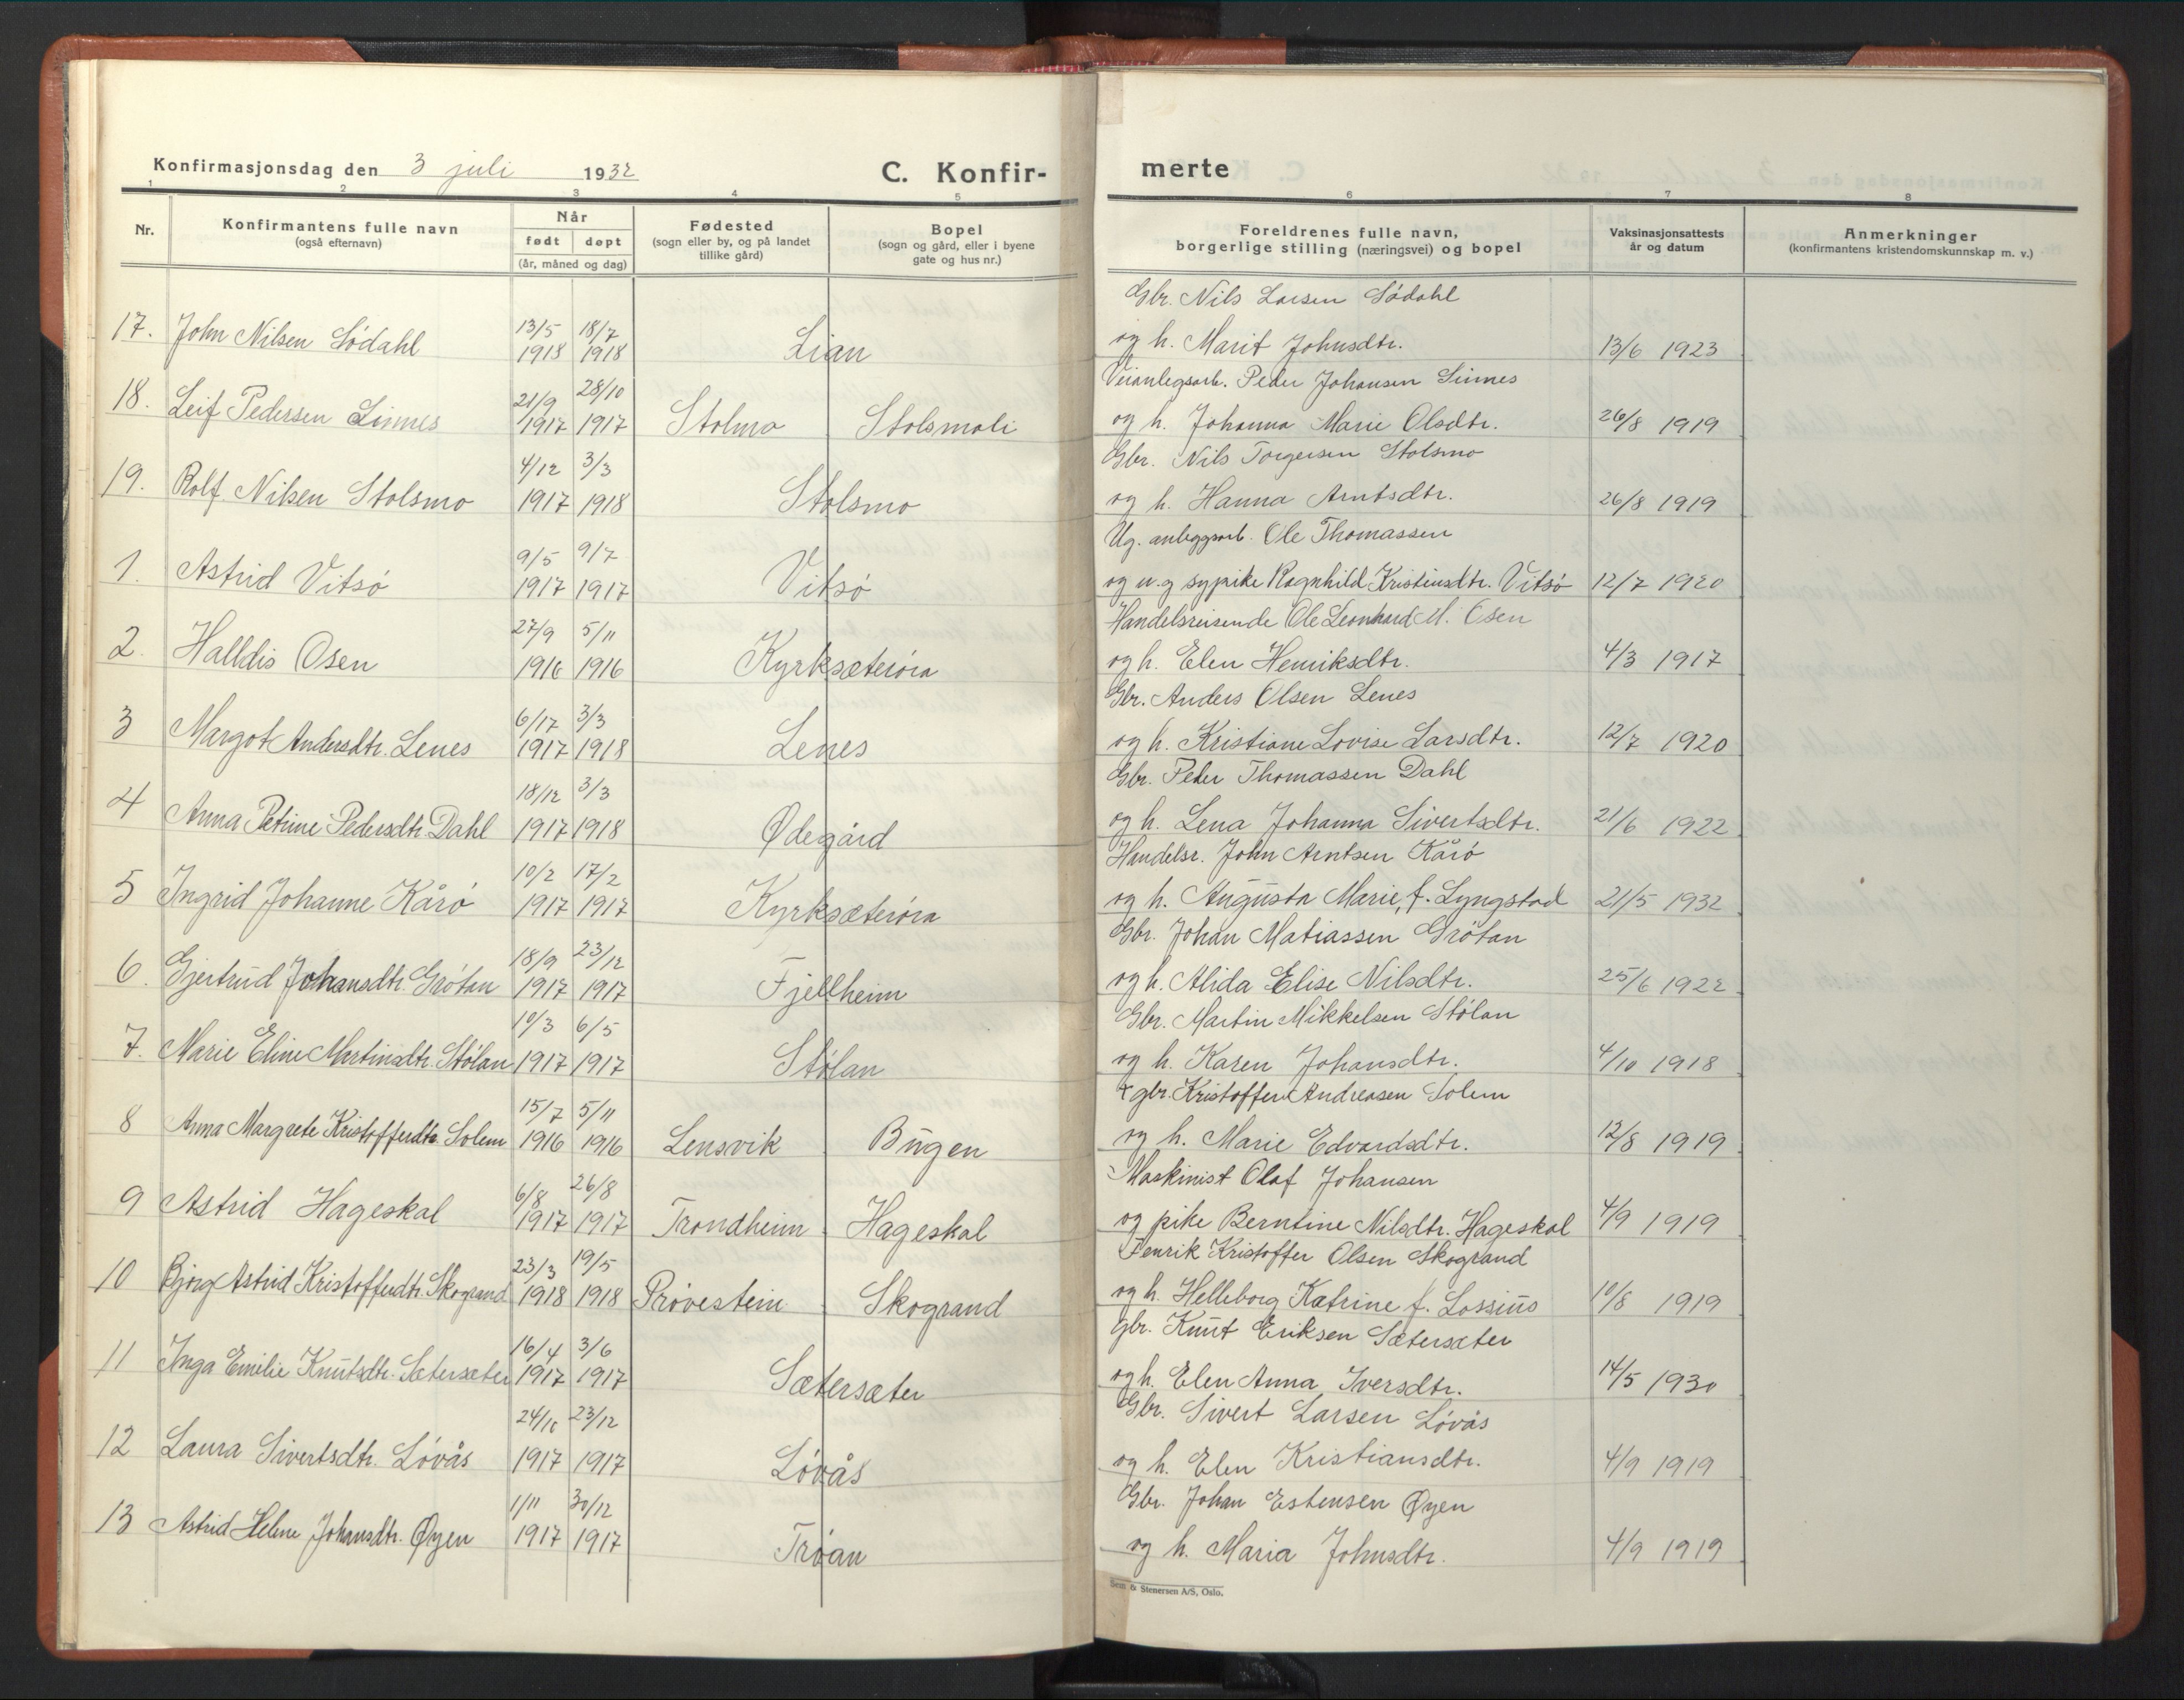 Konfirmasjonsdag den 3 juli 1932
C. Konfir-
merte
1 2 3 4 5 6 7 8
Nr.
Konfirmantens fulle navn
(også efternavn)
Når
født døpt
(år, måned og dag)
Fødested
(sogn eller by, og på landet
tillike gård)
Bopel
(sogn og gård, eller i byene
gate og hus nr.)
Foreldrenes fulle navn,
borgerlige stilling (næringsvei) og bopel
Vaksinasjonsattests
år og datum
Anmerkninger
(konfirmantens kristendomskunnskap m. v.)
Gbr. Nils Larsen Södahl
17. John Nilsen Södahl 13/5 1918 18/7 1918 Lian og h. Marit Johnsdtr. 13/6 1923
Veianlegsarb. Peder Johansen Linnes
18. Leif Pedersen Linnes 21/9 1917 28/10 1917 Stolmo Stolsmoli og h. Johanna Marie Olsdtr. 26/8 1919
Gbr. Nils Torgersen Stolsmo
19. Rolf Nilsen Stolsmo 4/12 1917 3/3 1918 Stolsmo og h. Hanna Arntsdtr. 26/8 1919
Ug. anleggsarb. Ole Thomassen
1. Astrid Vitsö 9/5 1917 9/7 1917 Vitsö og u.g sypike Ragnhild Kristiansdtr. Vitsö 12/7 1920
Handelsreisende Ole Leonhard M. Osen
2. Halldis Osen 27/9 1916 5/11 1916 Kyrksæteröra og h. Elen Henriksdtr. 4/3 1917
Gbr. Anders Olsen Lenes
3 Margot Andersdtr. Lenes 6/17 1917 3/3 1918 Lenes og h. Kristiane Lovise Larsdtr. 12/7 1920
Gbr. Peder Thomassen Dahl
4 Anna Petrine Pedersdtr Dahl 18/12 1917 3/3 1918 Ødegård og h. Lena Johanna Sivertsdtr. 21/6 1922
Handelsr. John Arntsen Kårö
5 Ingrid Johanne Kårö 10/2 1917 17/2 1917 Kyrksæteröra og h. Augusta Marie, f. Lyngstad 21/5 1932
Gbr. Johan Matiassen Grötan
6. Gjertrud Johansdtr. Grötan 18/9 1917 23/12 1917 Fjellheim og h. Alida Elise Nilsdtr. 25/6 1922
Gbr. Martin Mikkelsen Stölan
7. Marie Eline Martinsdtr. Stölan 10/3 1917 6/5 1917 Stölan og h. Karen Johansdtr. 4/10 1918
+ gbr. Kristoffer Andreasen Solem
8 Anna Margrete Kristoffersdtr. Solem 15/7 1916 5/11 1916 Lensvik Bugen og h. Marie Edvardsdtr. 12/8 1919
Maskinist Olaf Johansen
9 Astrid Hageskal 6/8 1917 26/8 1917 Trondheim Hageskal og pike Berntine Nilsdtr. Hageskal 4/9 1919
Henrik Kristoffer Olsen Skogrand
10 Bjørg Astrid Kristoffersdtr. Skogrand 23/3 1918 19/5 1918 Prövestein Skogrand og h. Helleborg Katrine f. Lossius 10/8 1919
gbr. Knut Eriksen Sætersæter
11 Inga Emilie Knutsdtr. Sætersæter 16/4 1917 3/6 1917 Sætersæter og h. Elen Anna Iversdtr. 14/5 1930
Gbr. Sivert Larsen Lövås
12 Laura Sivertsdtr. Lövås 24/10 1917 23/12 1917 Lövås og h. Elen Kristiansdtr. 4/9 1919
Gbr. Johan Estensen Øyen
13 Astrid Helene Johansdtr. Øyen 1/11 1917 30/12 1917 Tröan og h. Maria Johnsdtr. 4/9 1919
Sem & Stenersen A/S, Oslo.